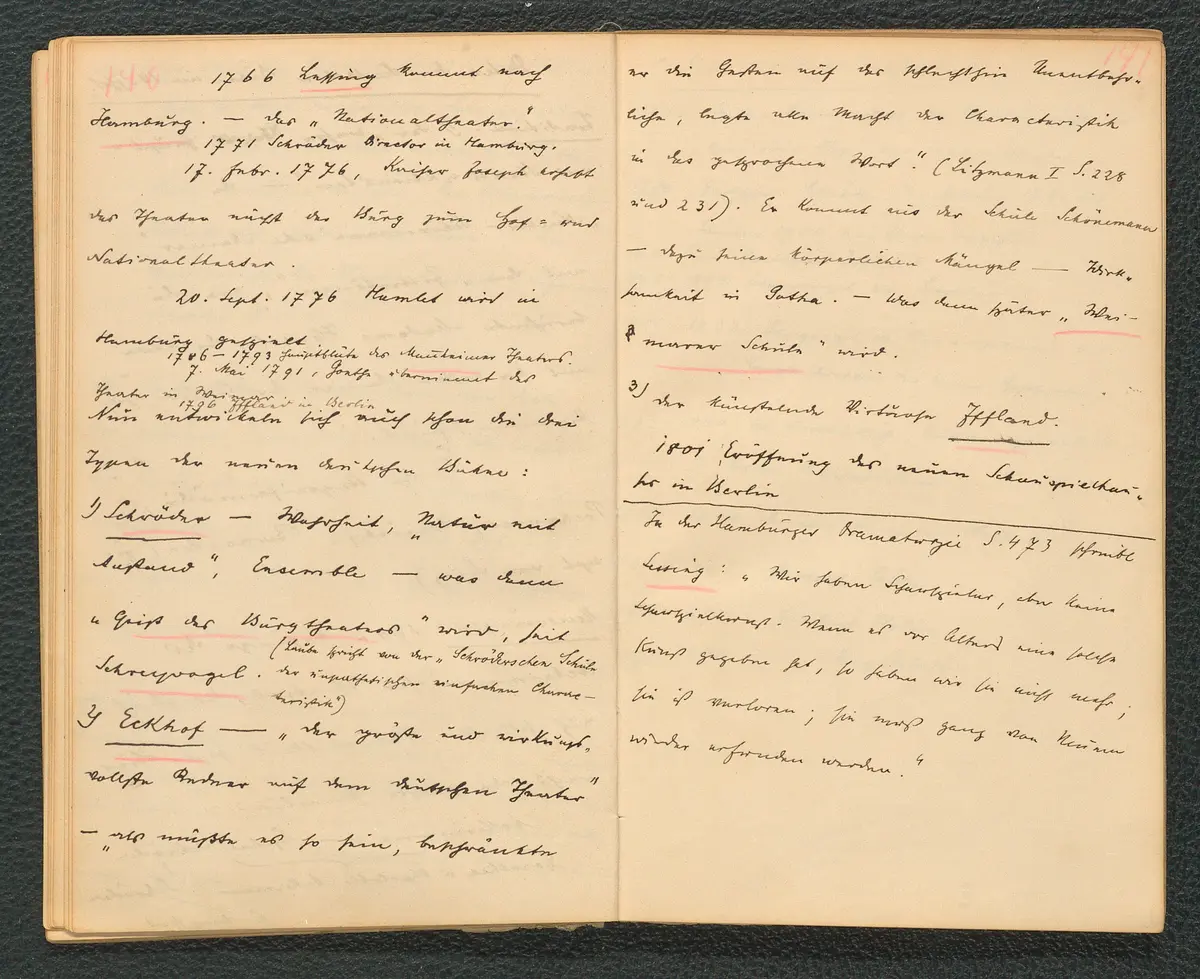 1766 Lessing kommt nach
Hamburg. — das „Nationaltheater."
1771 Schröder Director in Hamburg.
17. Febr. 1776, Kaiser Joseph erhebt
das Theater nächst der Burg zum Hof= und
Nationaltheater.
20. Sept. 1776 Hamlet wird in
Hamburg gespielt
– 1793 Hauptblüte des Mannheimer Theaters.
7. Mai 1791, Goethe übernimmt das
Theater in Weimar
1796 Iffland in Berlin
Nun entwickeln sich auch schon die drei
Typen der neuen deutschen Bühne:
1) Schröder — Wahrheit, „Natur mit
Anstand", Ensemble — was dann
„Geist des Burgtheaters" wird, seit
(Laube spricht von der „Schröderschen Schule
Schreyvogel. der unpathetischen einfachen Charac-
teristik")
2) Eckhof — „der größte und wirkungs-
vollste Redner auf dem deutschen Theater"
— „als müßte es so sein, beschränkte
er die Gesten auf das schlechthin Unentbehr-
liche, legte alle Macht der Characteristik
in das gesprochene Wort." (Litzmann I S. 228
und 231). Er kommt aus der Schule Schönemann
— dazu seine körperlichen Mängel — Wirk-
samkeit in Gotha. — Was dann später „Wei-
marer Schule" wird.
3) der künstelnde Virtuose Iffland.
1801 Eröffnung des neuen Schauspielhau-
ses in Berlin
In der Hamburger Dramaturgie S. 473 schreibt
Lessing: „Wir haben Schauspieler, aber keine
Schauspielkunst. Wenn es vor Alters eine solche
Kunst gegeben hat, so haben wir sie nicht mehr;
sie ist verloren; sie muß ganz von Neuem
wieder erfunden werden."